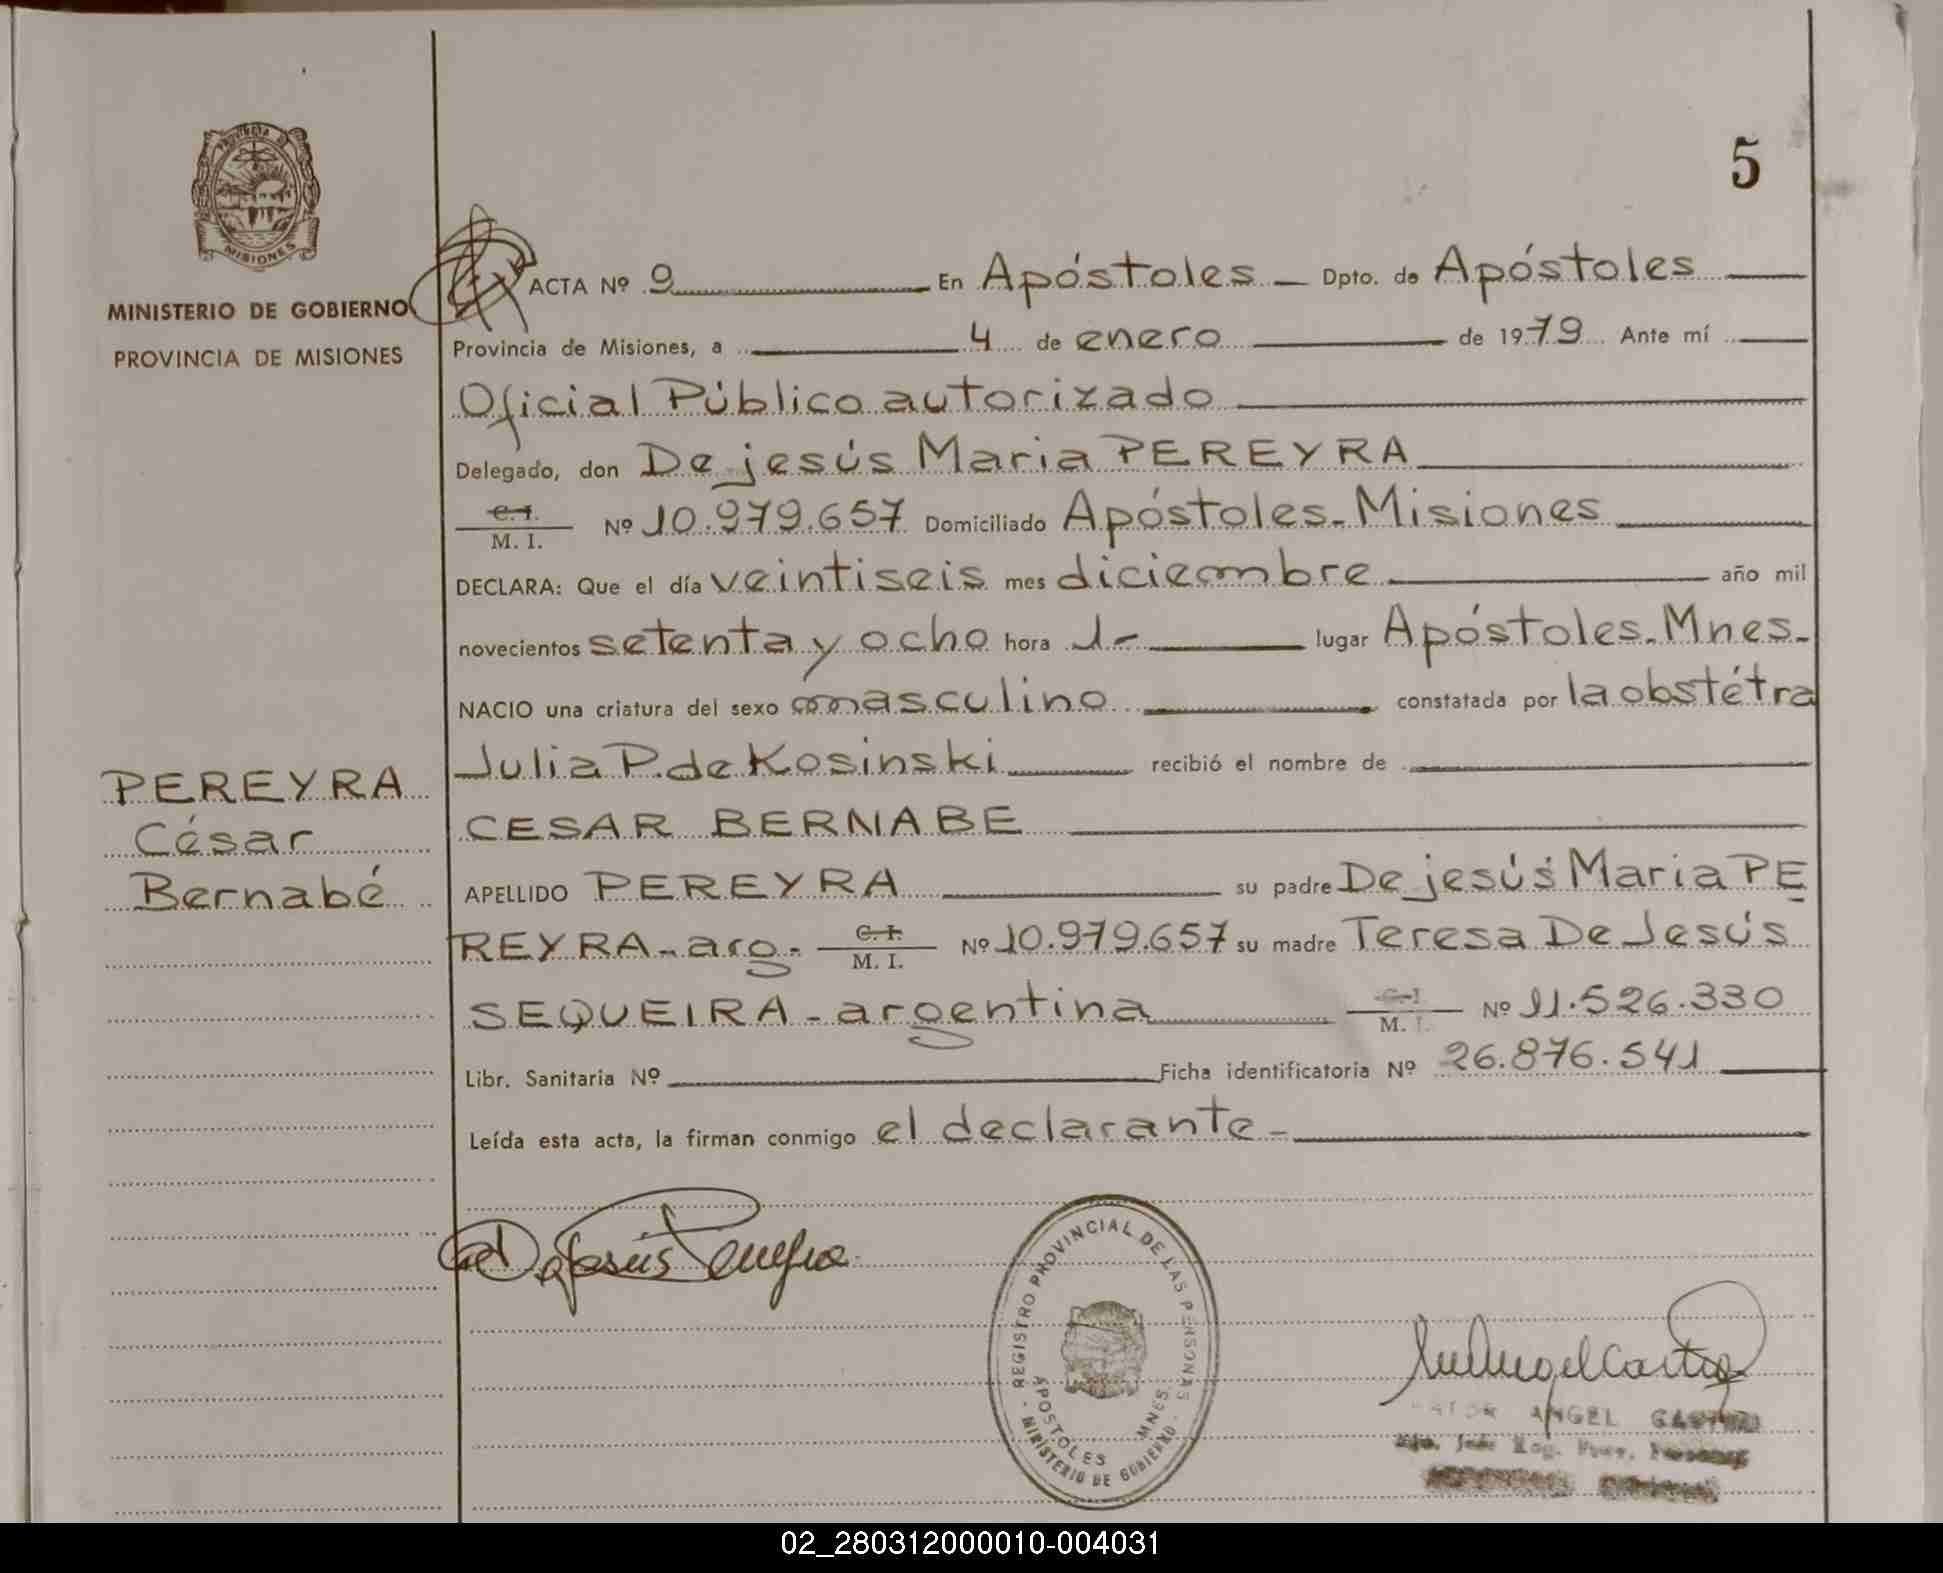 PROVINCIA DE
MISIONES
MINISTERIO DE GOBIERNO
PROVINCIA DE MISIONES
5
ACTA Nº 9 En Apóstoles Dpto. de Apóstoles
Provincia de Misiones, a 4 de enero de 1979 Ante mí
Oficial Público autorizado
Delegado, don De jesús Maria PEREYRA
C. I.
M. I. Nº 10.979.657 Domiciliado Apóstoles-Misiones
DECLARA: Que el día veintiseis mes diciembre año mil
novecientos setenta y ocho hora 1- lugar Apóstoles-Mnes-
NACIO una criatura del sexo masculino constatada por la obstétra
Julia P. de Kosinski recibió el nombre de
CESAR BERNABE
APELLIDO PEREYRA su padre De jesús Maria PE
REYRA-arg- C. I.
M. I. Nº 10.979.657 su madre Teresa De Jesús
SEQUEIRA-argentina C. I.
M. I. Nº 11.526.330
Libr. Sanitaria Nº Ficha identificatoria Nº 26.876.541
Leída esta acta, la firman conmigo el declarante-
PEREYRA
César
Bernabé
De Jesús Pereyra
REGISTRO PROVINCIAL DE LAS PERSONAS
APOSTOLES MNES.
- MINISTERIO DE GOBIERNO -
Angel Castro
ANGEL
02_280312000010-004031